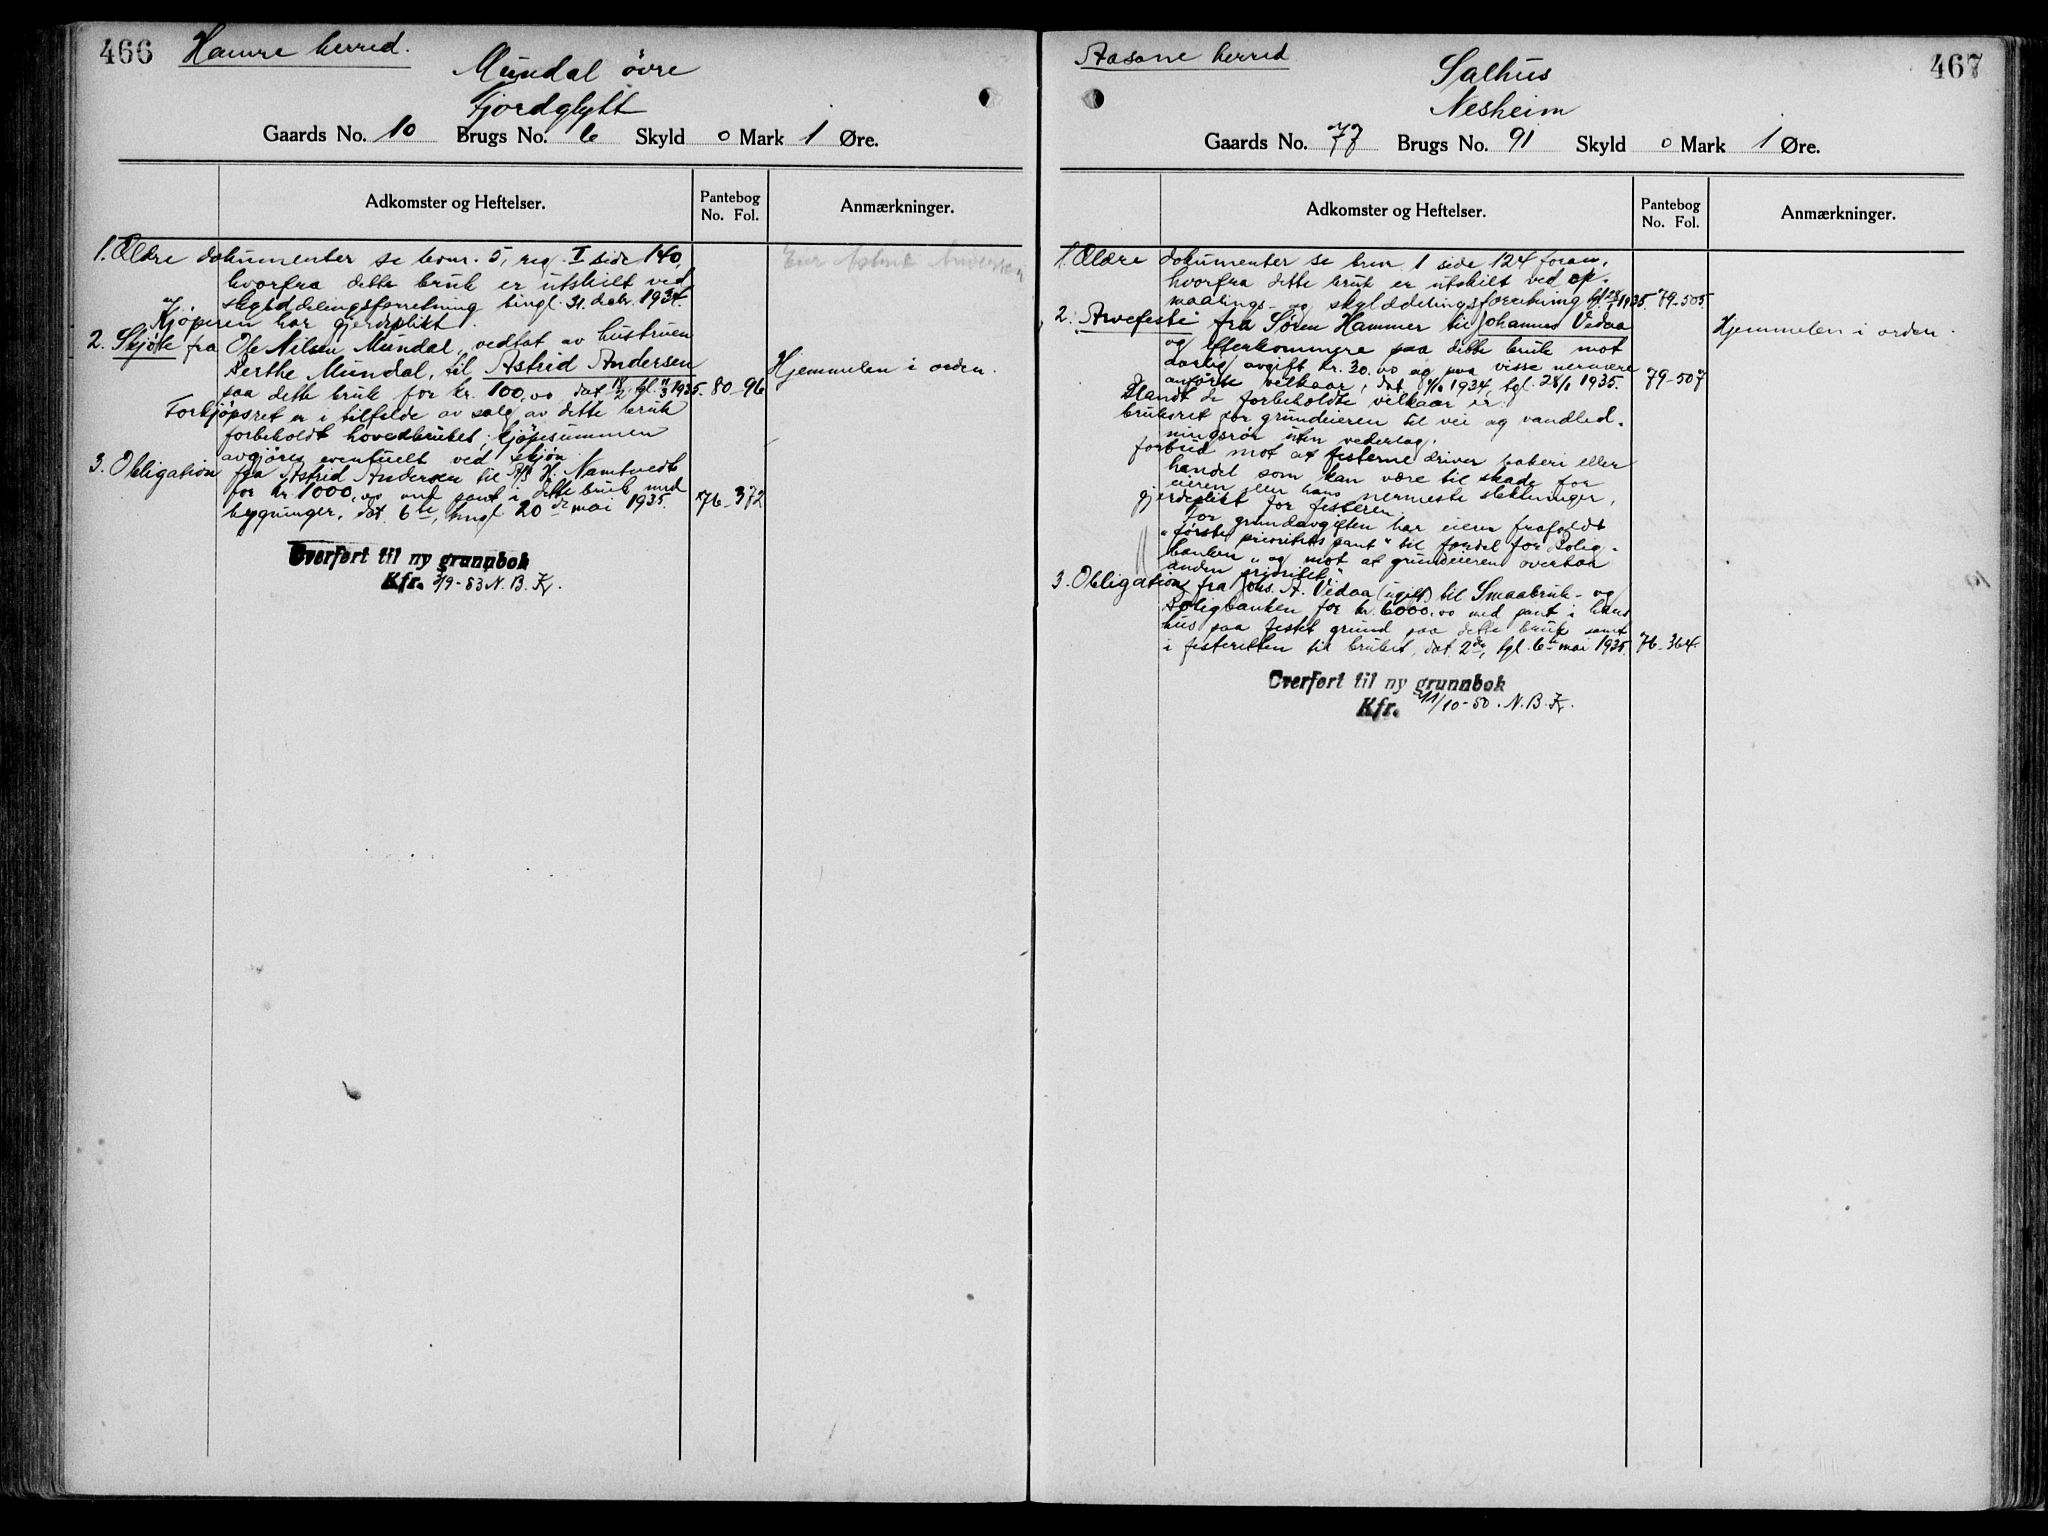 466
Hamre herred.
Mundal övre
Fjordglytt
Gaards No. 10 Brugs No. 6 Skyld 0 Mark 1 Øre.
Adkomster og Heftelser.
Pantebog
No. Fol.
Anmærkninger.
1. Ældre dokumenter se bnr. 5, reg. I side 140,
hvorfra dette bruk er utskilt ved
skylddelingsforretning tingl. 31. decbr. 1934.
Kjöperen har gjerdeplikt.
2. Skjöte fra Ole Nilsen Mundal, vedtat av hustruen
Berthe Mundal, til Astrid Andersen
paa dette bruk for kr. 100,00 dat. 18/2, tgl. 11/3 1935. 80-96
Hjemmelen i orden.
Forkjöpsret er i tilfælde av salg av dette bruk
forbeholdt hovedbruket, kjöpesummen
avgjöres eventuelt ved skjön.
3. Obligation fra Astrid Andersen til A/S H. Namtvedt
for kr. 1000,00 med pant i dette bruk med
bygninger, dat. 6te, tingl 20de mai 1935. 76-372
Overført til ny grunnbok
Kfr. 3/9-53 N. B. K.
467
Aasane herred
Salhus
Nesheim
Gaards No. 77 Brugs No. 91 Skyld 0 Mark 1 Øre.
Adkomster og Heftelser.
Pantebog
No. Fol.
Anmærkninger.
1. Ældre dokumenter se bnr. 1 side 124 foran,
hvorfra dette bruk er utskilt ved op-
maalings- og skylddelingsforretning tgl. 28/1 1935. 79-505
2. Arvefeste fra Sören Hammer til Johannes Vedaa
Hjemmelen i orden.
og efterkommere paa dette bruk mot
aarlig avgift kr. 30.00 og paa visse nermere
anførte velkaar, dat. 4/10 1934, tgl. 28/1 1935. 79-507
Blandt de forbeholdte vilkaar er:
bruksret for grundeieren til vei og vandled-
ningsrör uten vederlag,
forbud mot at festerne driver bakeri eller
handel som kan være til skade for
eieren eller hans nermeste slektninger,
gjerdeplikt for festeren.
For grundavgiften har eieren frafaldt
"første prioritets pant" til fordel for Bolig-
banken "og mot at grundeieren overtar
anden prioritet"
3. Obligation fra Johs. A. Vedaa (ugift) til Smaabruk- og
Boligbanken for kr. 6000,00 med pant i hans
hus paa festet grund paa dette bruk samt
i festeretten til bruket, dat. 2de, tgl. 6te mai 1935. 76-364.
Overført til ny grunnbok
Kfr. 11/10-50. N. B. K.